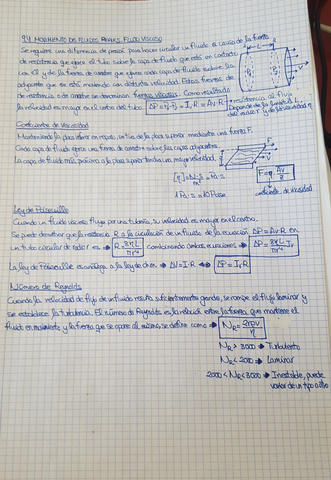 9.4 MOVIMIENTO DE FLUIDOS REALES. FLUIDO VISCOSO
Se requiere una diferencia de presión para hacer circular un fluido a causa de la fuerza
de resistencia que ejerce el tubo sobre la capa de fluido que está en contacto
con él y de la fuerza de arrastre que ejerce cada capa de fluido sobre la
adyacente que se está moviendo con distinta velocidad. Estas fuerzas de
de resistencia o de arrastre se denominan fuerzas viscosas. Como resultado
la velocidad es mayor en el centro del tubo. ΔP = P₁-P₂ = Iᵥ·R = Av·R
L
P₁ P₂
resistencia al flujo
Depende de la longitud L,
del radio r y de la viscosidad η
Coeficiente de Viscosidad
Manteniendo la placa inferior en reposo, se tira de la placa superior mediante una fuerza F.
Cada capa de fluido ejerce una fuerza de arrastre sobre las capas adyacentes.
La capa de fluido más próxima a la placa superior tendrá una mayor velocidad.
F
F = η Av/z
[η] = N·s/m² = Pa·s
1 Pa·s = 10 Poise
coeficiente de viscosidad
Ley de Poiseuille
Cuando un fluido viscoso fluye por una tubería, su velocidad es mayor en el centro.
Se puede demostrar que la resistencia R a la circulación de un fluido de la ecuación ΔP = Av·R en
un tubo circular de radio r es → R = 8ηL/πr⁴ combinando ambas ecuaciones → ΔP = 8ηL/πr⁴ Iᵥ
La ley de Poiseuille es análoga a la ley de ohm → ΔV = I·R ↔ ΔP = Iᵥ R
Número de Reynolds
Cuando la velocidad de flujo de un fluido resulta suficientemente grande, se rompe el flujo laminar y
se establece la turbulencia. El número de Reynolds es la relación entre la fuerza que mantiene el
fluido en movimiento y la fuerza que se opone al mismo, se define como → N_R = 2rρv/η
N_R > 3000 → Turbulento
N_R < 2000 → Laminar
2000 < N_R < 3000 → Inestable, puede
variar de un tipo a otro